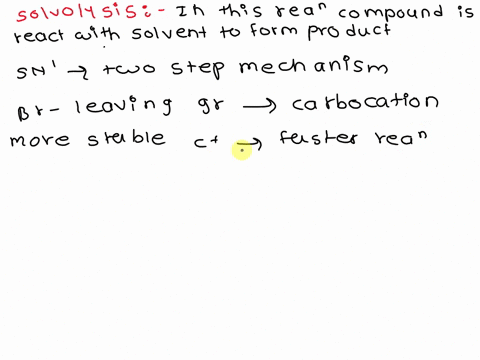 solvolysis:- In this reaⁿ compound is
react with solvent to form product
SN¹ → two step mechanism
Br - leaving gr → carbocation
more stable c+ → faster reaⁿ